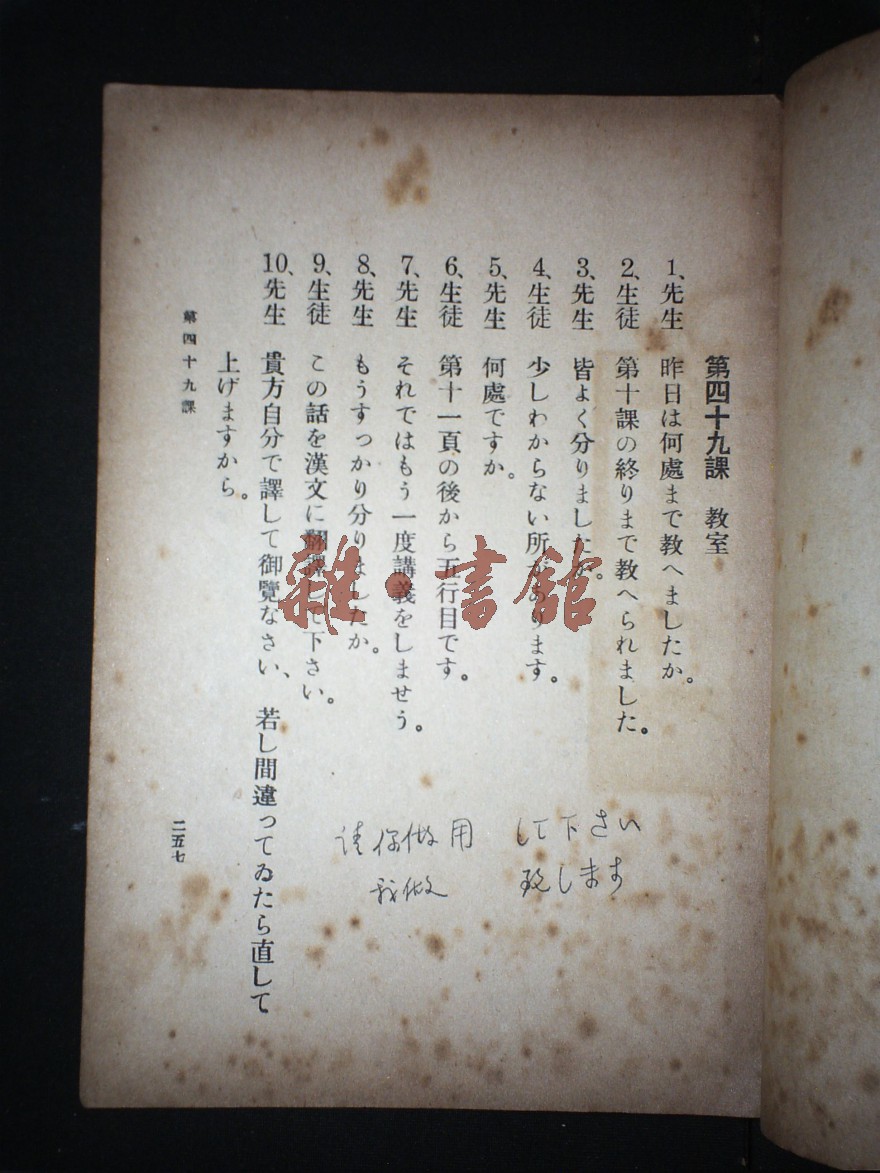 第四十九課　教室
1、先生　昨日は何處まで教へましたか。
2、生徒　第十課の終りまで教へられました。
3、先生　皆よく分りましたか。
4、生徒　少しわからない所があります。
5、先生　何處ですか。
6、生徒　第十一頁の後から五行目です。
7、先生　それではもう一度講義をしませう。
8、先生　もうすっかり分りましたか。
9、生徒　この話を漢文に翻譯して下さい。
10、先生　貴方自分で譯して御覽なさい、若し間違ってゐたら直して
上げますから。
第四十九課
二五七
请你做用　して下さい
我做　致します
雜·書館